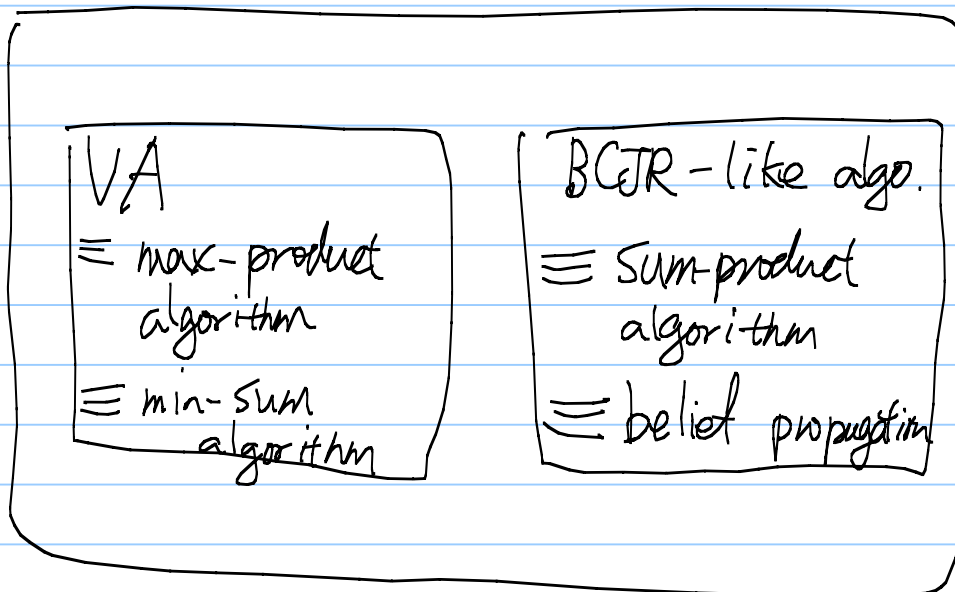 VA
≡ max-product
algorithm
≡ min-sum
algorithm
BCJR-like algo.
≡ sum-product
algorithm
≡ belief propagation